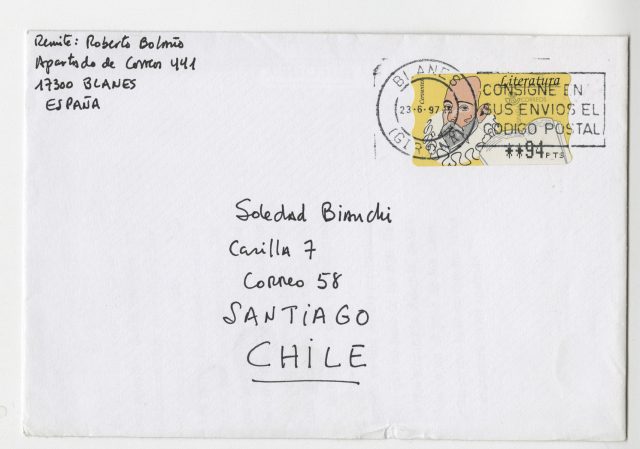 Remite: Roberto Bolaño
Apartado de Correos 441
17300 BLANES
ESPAÑA
BLANES
23-6-97
(GIRONA)
Literatura
Cervantes
CORREOS
CONSIGNE EN
SUS ENVIOS EL
CODIGO POSTAL
**94 PTS
Soledad Bianchi
Casilla 7
Correo 58
SANTIAGO
CHILE